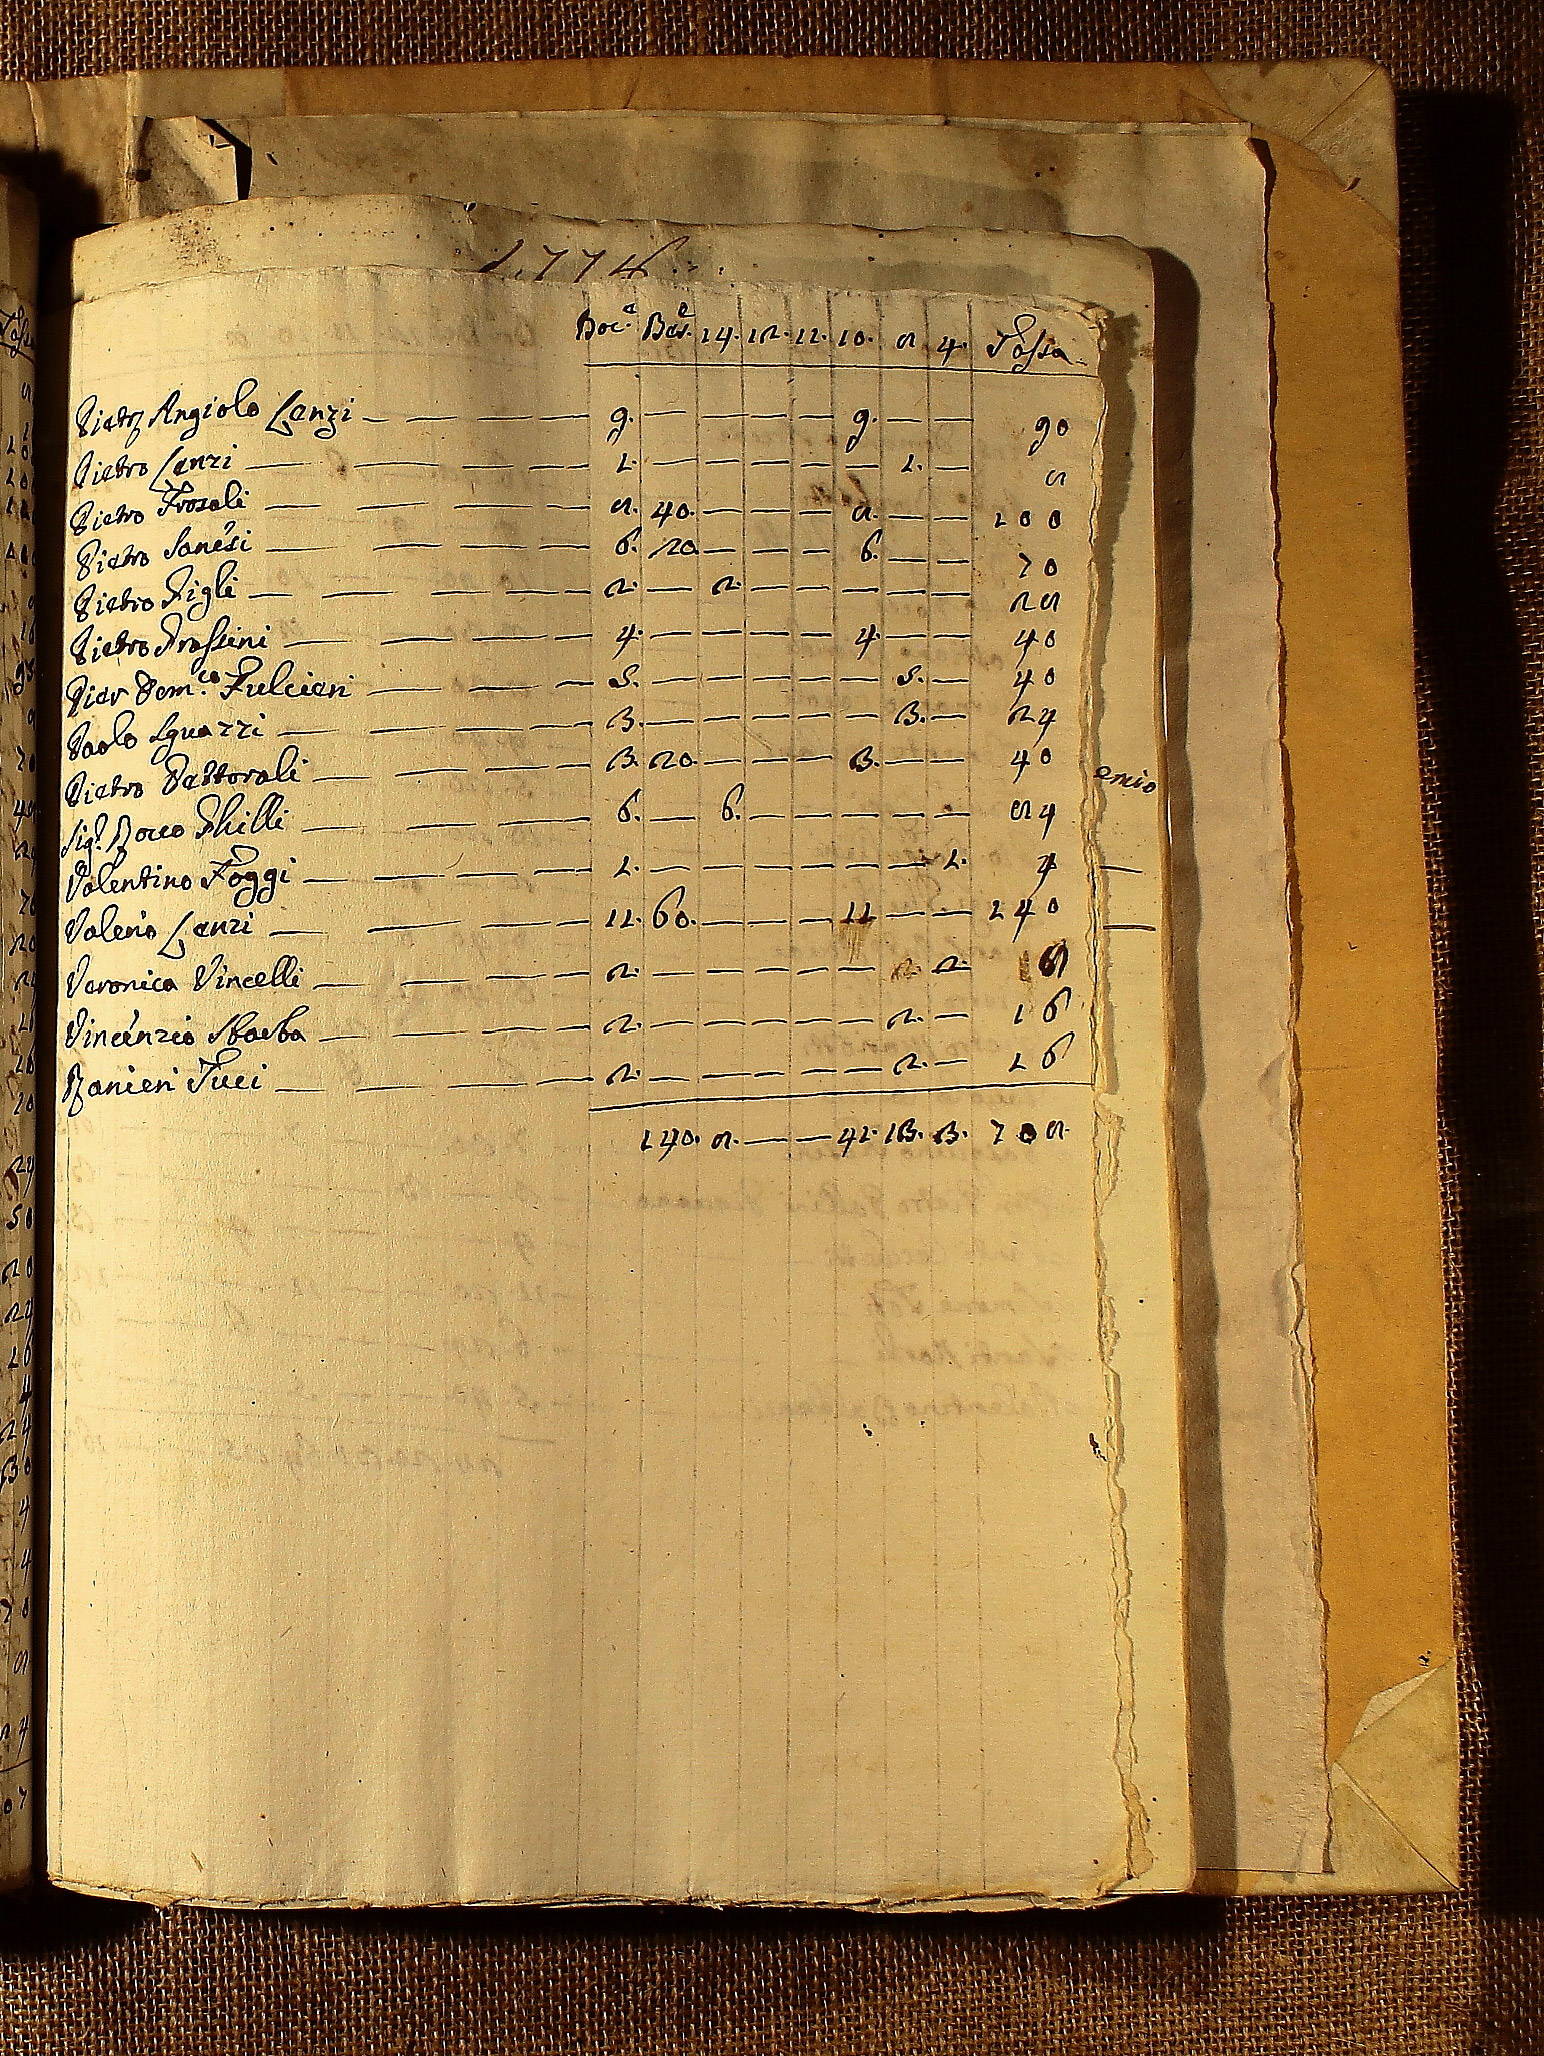 1.776.
Boc.e Bes.e 14. 18. 12. 10. 8. 4. Tassa
Pietr Angiolo Lenzi — — — — — 9. — — — — 9. — — 90
Pietro Lenzi — — — — — 1. — — — — — 1. — 8
Pietro Frosali — — — — — 8. 40. — — — 8. — — 100
Pietro Sanesi — — — — — 6. 20. — — — 6. — — 70
Pietro Figli — — — — — 2. — 2. — — — — — 28
Pietro Frassini — — — — 4. — — — — 4. — — 40
Pier Dom.co Fulcieri — — — — 5. — — — — — 5. — 40
Paolo Sguazzi — — — — — 3. — — — — — 3. — 24
Pietro Pastorali — — — — 3. 20. — — — 3. — — 40
emio
Sig.r Rocco Ghilli — — — — 6. — 6. — — — — — 84
Valentino Foggi — — — — 1. — — — — — — 1. 4 —
Valerio Lenzi — — — — 11. 60. — — — 11 — — 140 —
Veronica Vincelli — — — — 2. — — — — — 2. 2. 8
Vincenzio Sbarba — — — — 2. — — — — — 2. — 16
Ranieri Tuci — — — — 2. — — — — — 2. — 16
140. 8. — — 41. 13. 3. 708.